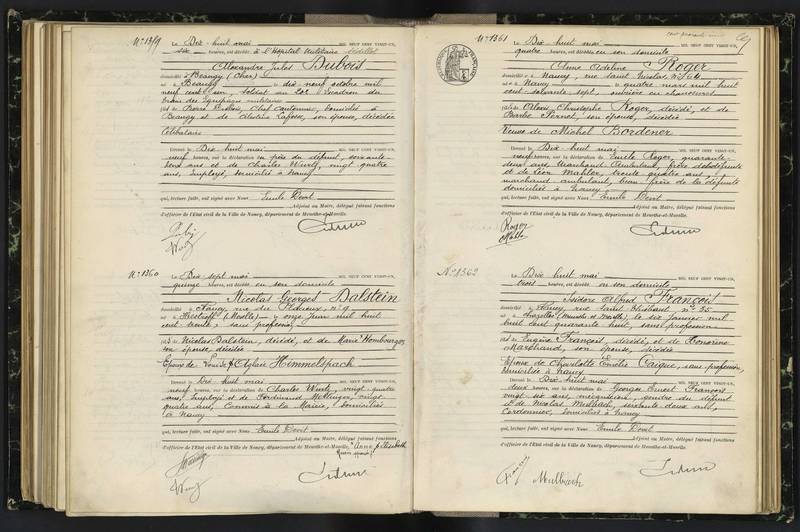 N° 1359
Le Dix-huit mai MIL NEUF CENT VINGT-UN,
six heures, est décédé à l'Hôpital militaire Sédillot
Alexandre Jules Dubois
domicilié à Beaugy (Cher)
né à Beaugy le dix neuf octobre mil
neuf cent un, soldat au 20e Escadron du
train des Equipages militaires
fils de Dubois, Chef cantonnier, domicilié à
Beaugy et de son épouse, décédée
Célibataire
Dressé le Dix-huit mai
neuf heures, sur la déclaration du père du défunt, soixante
deux ans et de Charles Wirtz, vingt quatre
ans, Employé, domiciliés à Nancy
qui, lecture faite, ont signé avec Nous Emile Devit
Adjoint au Maire, délégué faisant fonctions
d'officier de l'Etat civil de la Ville de Nancy, département de Meurthe-et-Moselle.
N° 1360
Le Dix-sept mai MIL NEUF CENT VINGT-UN,
quinze heures, est décédé en son domicile
Nicolas Georges Dalstein
domicilié à Nancy, rue du n° 9
né à (Moselle) le onze Juin mil huit
cent trente, sans profession
fils de Nicolas Dalstein, décédé, et de Marie Hombourger
son épouse, décédée
Epoux de Louise Aglaée Himmelspach
Dressé le Dix-huit mai
neuf heures, sur la déclaration de Charles Wirtz, vingt quatre
ans, Employé et de Ferdinand vingt
quatre ans, Commis à la Mairie, domiciliés
à Nancy
qui, lecture faite, ont signé avec Nous Emile Devit
Adjoint au Maire, délégué faisant fonctions
d'officier de l'Etat civil de la Ville de Nancy, département de Meurthe-et-Moselle. Anne Elisabeth
N° 1361
Le Dix-huit mai MIL NEUF CENT VINGT-UN,
quatre heures, est décédée en son domicile
Anne Adeline Roger
domiciliée à Nancy, rue Saint Nicolas n° 64
née à Nancy le quatre mars mil huit
cent soixante sept, ouvrière en chaussures
fille de Christophe Roger, décédé, et de
Barbe son épouse, décédée
Veuve de Michel Bordener
Dressé le Dix-huit mai
neuf heures, sur la déclaration de Emile Roger, quarante
deux ans, Marchand Ambulant, frère de la défunte
et de Léon Mahler, trente quatre ans,
marchand ambulant, beau-frère de la défunte
domiciliés à Nancy
qui, lecture faite, ont signé avec Nous Emile Devit
Adjoint au Maire, délégué faisant fonctions
d'officier de l'Etat civil de la Ville de Nancy, département de Meurthe-et-Moselle.
Roger
N° 1362
Le Dix-huit mai MIL NEUF CENT VINGT-UN,
trois heures, est décédé en son domicile
Isidore Alfred François
domicilié à Nancy, rue Saint Thiébaut n° 35
né à Chazelles (Meurthe et Moselle) le six Janvier mil
huit cent quarante huit, sans profession
fils de Eugène François, décédé, et de Honorine
Marchand, son épouse, décédée
Epoux de Charlotte Emélie sans profession
domiciliée à Nancy
Dressé le Dix-huit mai
deux heures, sur la déclaration de Georges Ernest François
vingt six ans, mécanicien, gendre du défunt
et de Nicolas Mulbach, soixante deux ans,
Cordonnier, domiciliés à Nancy
qui, lecture faite, ont signé avec Nous Emile Devit
Adjoint au Maire, délégué faisant fonctions
d'officier de l'Etat civil de la Ville de Nancy, département de Meurthe-et-Moselle.
François
Mulbach